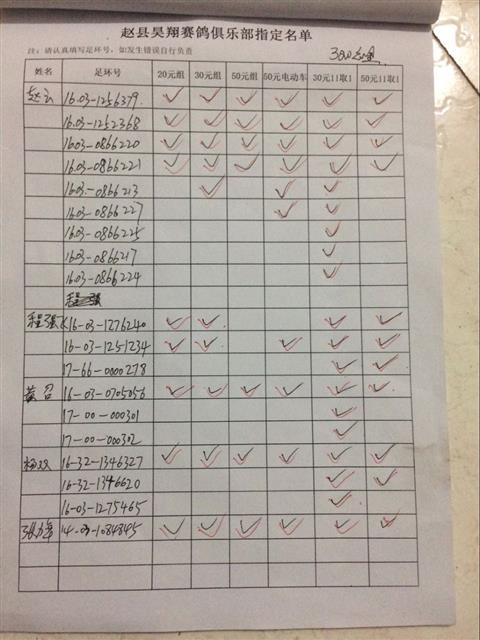 赵县昊翔赛鸽俱乐部指定名单
注：请认真填写足环号，如发生错误自行负责
姓名 足环号 20元组 30元组 50元组 50元电动车 30元11取1 50元11取1
16.03-1256379 ✓ ✓ ✓ ✓ ✓ ✓
16.03-1252368 ✓ ✓ ✓ ✓ ✓ ✓
1603-0866220 ✓ ✓ ✓ ✓ ✓ ✓
16.03-0866221 ✓ ✓ ✓ ✓ ✓ ✓
1603-0866213 ✓ ✓ ✓
1603-0866227 ✓ ✓
1603-0866225 ✓
1603-0866217 ✓
1603-0866224 ✓
程强
程强 16-03-1276240 ✓ ✓ ✓ ✓
16-03-1251234 ✓ ✓ ✓ ✓ ✓
17-66-0000278 ✓ ✓
16-03-0705056 ✓ ✓ ✓ ✓ ✓ ✓
17-00-000301 ✓
17-00-000302 ✓
杨双 16-32-1346327 ✓ ✓ ✓ ✓ ✓ ✓
16-32-1346620 ✓ ✓
16-03-1275465 ✓
14-03-1084845 ✓ ✓ ✓ ✓ ✓ ✓